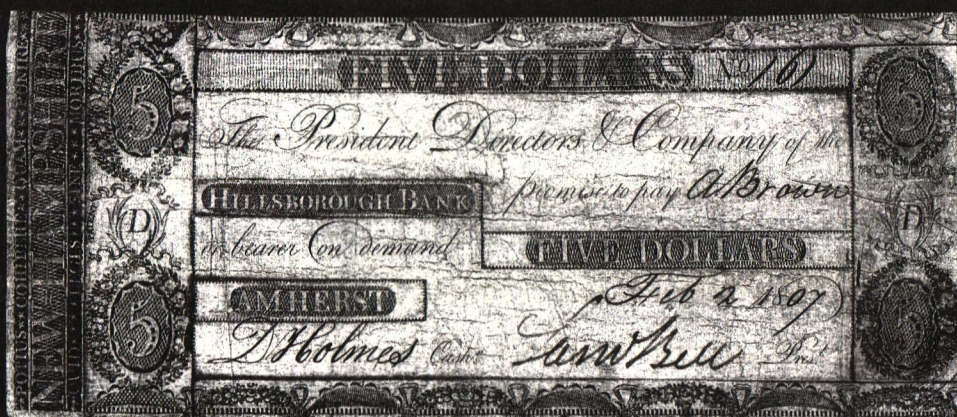 NEW HAMPSHIRE
5
D
5
FIVE DOLLARS No 161
The President Directors & Company of the
HILLSBOROUGH BANK promise to pay A Brown
or bearer on demand FIVE DOLLARS
AMHERST Feb 2 1807
D Holmes Cashr Saml Bell Prest
5
D
5